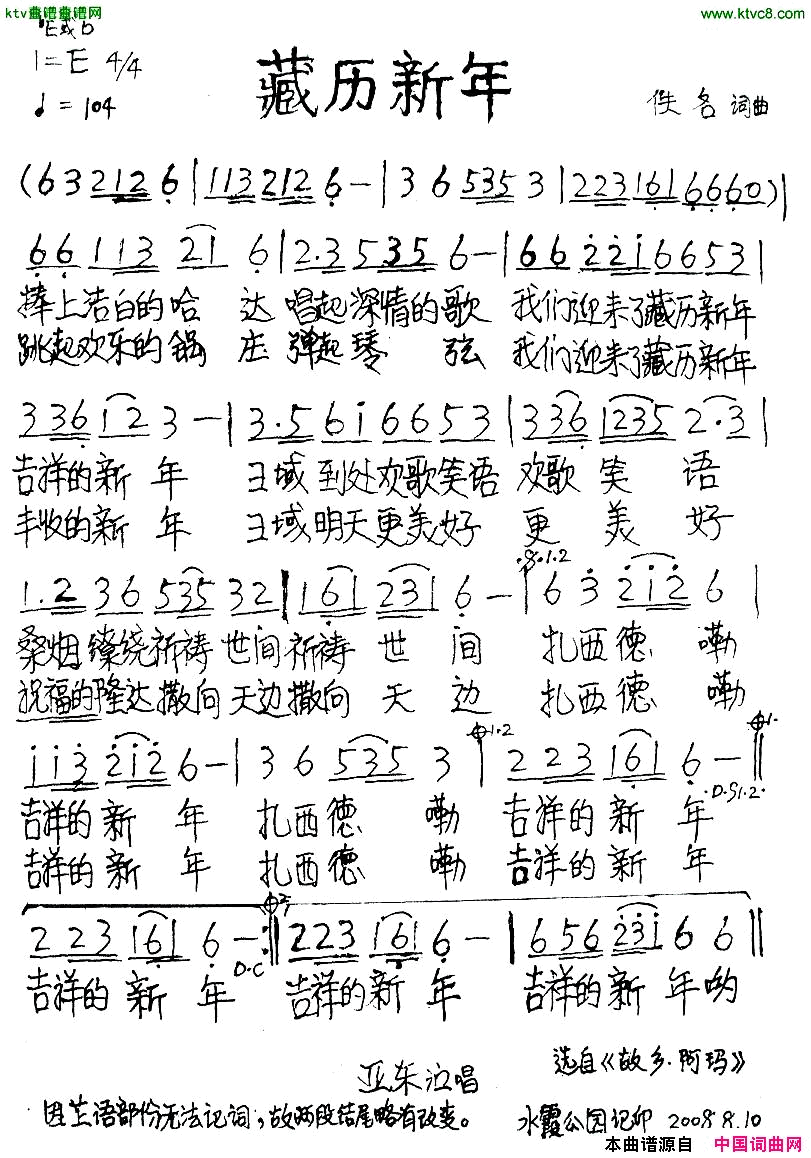 ktv歌谱曲谱网 www.ktvc8.com
1=E 4/4
♩=104
藏历新年
佚名 词曲
(6 3 2 1 2 6 | 1 1 3 2 1 2 6 - | 3 6 5 3 5 3 | 2 2 3 1 6 1 6 6 6 0) |
6 6 1 1 3 2 1 6 | 2. 3 5 3 5 6 - | 6 6 2 2 1 6 6 5 3 |
捧上洁白的哈 达 唱起深情的歌 我们迎来了藏历新年
跳起欢乐的锅 庄 弹起琴 弦 我们迎来了藏历新年
3 3 6 1 2 3 - | 3. 5 6 1 6 6 5 3 | 3 3 6 1 2 3 5 2. 3 |
吉祥的新 年 王域到处欢歌笑语 欢歌 笑 语
丰收的新 年 王域明天更美好 更 美 好
1. 2 3 6 5 3 5 3 2 | 1 6 1 2 3 1 6 - | 6 3 2 1 2 6 |
桑烟缭绕祈祷 世间祈祷 世 间 扎西德 嘞
祝福的隆达撒向 天边撒向 天 边 扎西德 嘞
1 1 3 2 1 2 6 - | 3 6 5 3 5 3 | 2 2 3 1 6 1 6 - ||
D.S1.2.
吉祥的 新 年 扎西德 嘞 吉祥的 新 年
吉祥的 新 年 扎西德 嘞 吉祥的 新 年
2 2 3 1 6 1 6 - :|| 2 2 3 1 6 1 6 - | 6 5 6 2 3 1 6 6 ||
D.C
吉祥的 新 年 吉祥的新 年 吉祥的新 年哟
选自《故乡·阿玛》
亚东 演唱
因兰语部份无法记词,故两段结尾略有改变。 水霞公园记印 2008.8.10
本曲谱源自 中国词曲网